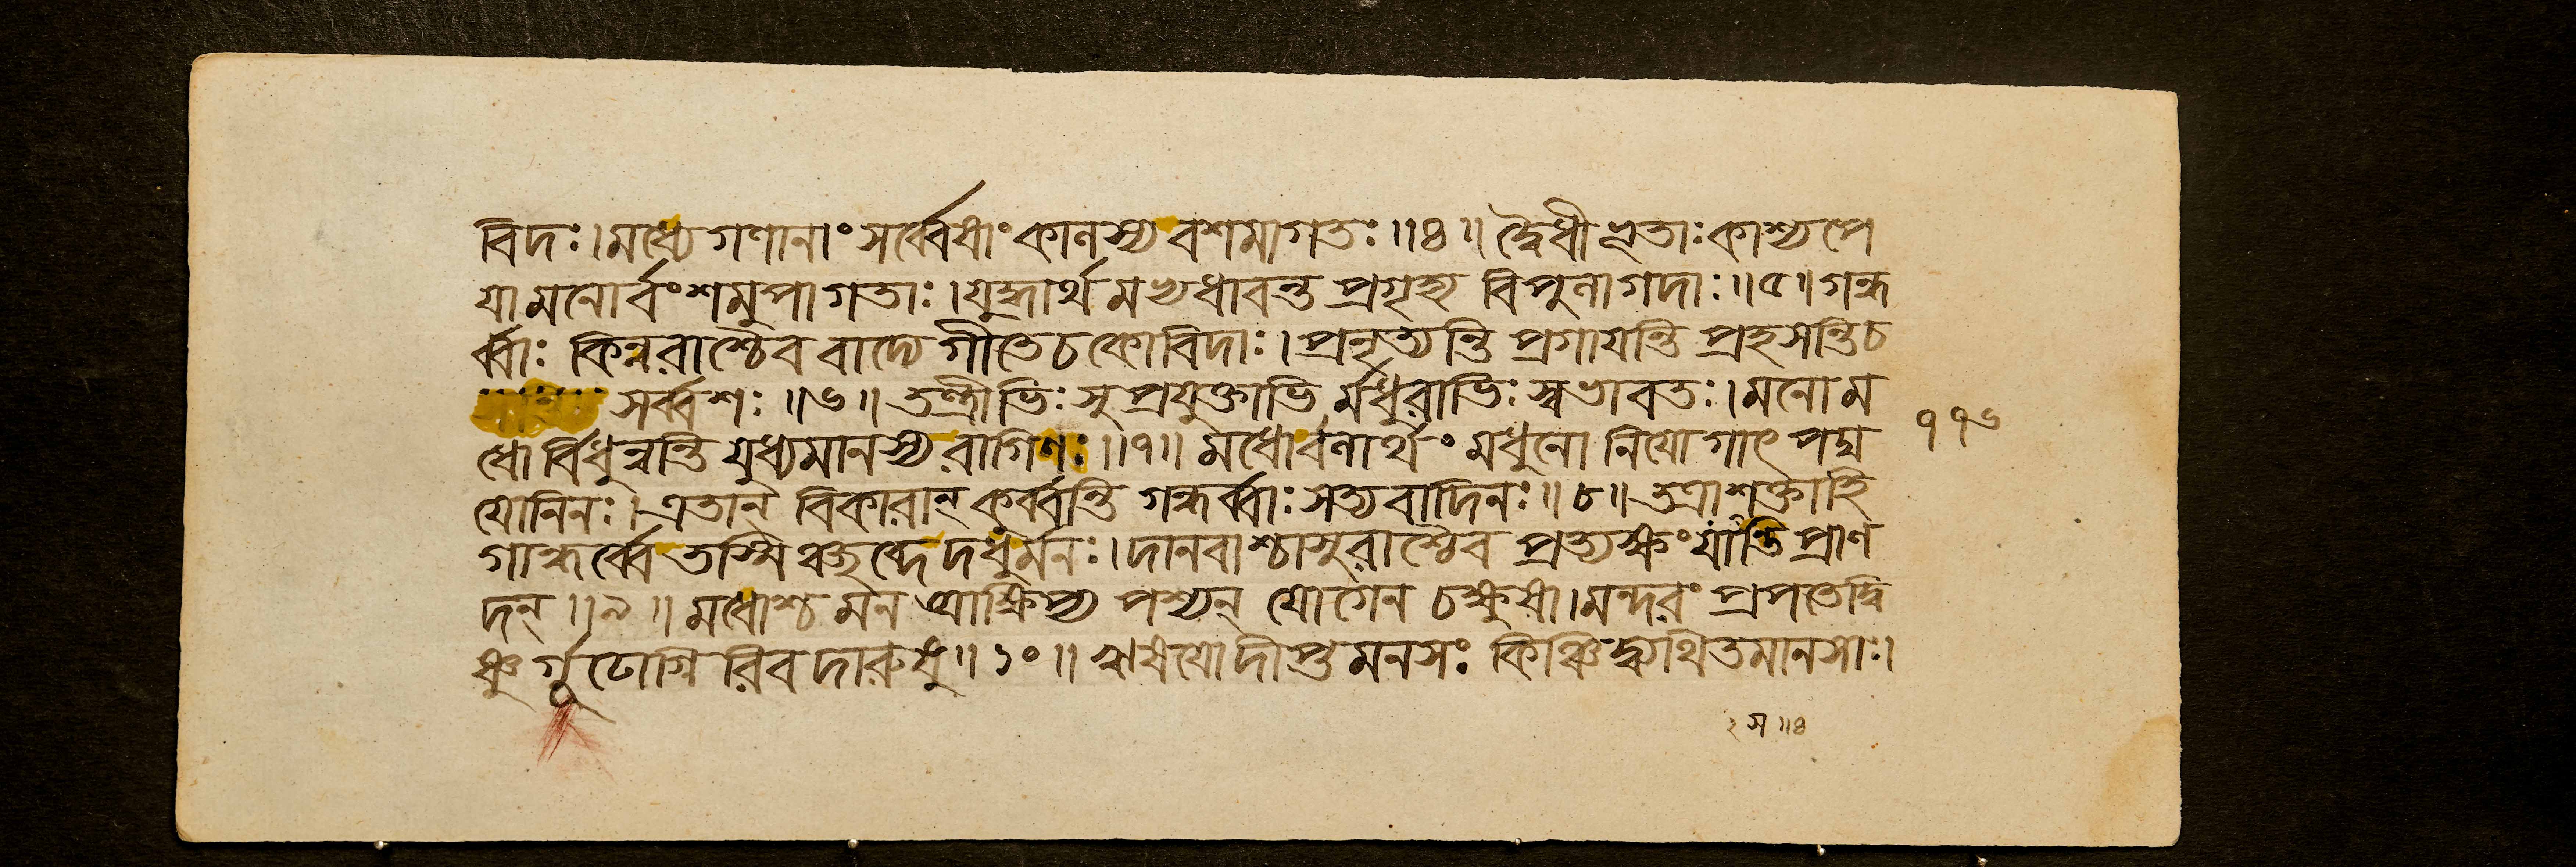 বিদঃ।মধ্যেগণানাংসর্ব্বেষাংকালস্য বশমাগতঃ॥৪॥দ্বৈধীভূতাঃকাশ্যপে
যামনোর্বংশমুপাগতাঃ।যুদ্ধার্থমভ্যধাবন্ত প্রগৃহ্য বিপুলাগদাঃ॥৫॥গন্ধ
র্ব্বাঃ কিন্নরাশ্চৈব বাদ্যে গীতেচকোবিদাঃ।প্রনৃত্যন্তি প্রগায়ন্তি প্রহসন্তিচ
সর্ব্বশঃ॥৬॥তন্ত্রীভিঃসুপ্রযুক্তাভি র্মধুরাভিঃস্বভাবতঃ।মনোম
ধোর্বিধুন্বন্তি যুধ্যমানস্য রাগিণঃ॥৭॥মধোর্বলার্থং মধুনো নিযোগাৎ পদ্ম
যোনিনঃ।এতান্ বিকারান্ কুর্ব্বন্তি গন্ধর্ব্বাঃসত্যবাদিনঃ॥৮॥তত্রাশক্তাহি
গান্ধর্ব্বে তস্মিঞ্ছব্দেদধুর্মনঃ।দানবাশ্চাসুরাশ্চৈব প্রত্যক্ষংযান্তি প্রাণ
দন্॥৯॥মধোশ্চ মন আক্ষিপ্য পশ্যন্ যোগেন চক্ষুষা।মন্দরং প্রপতেদ্বি
ষ্ণু র্গূঢোগ্নি রিব দারুষু॥১০॥ঋষয়োদীপ্তমনসঃ কিঞ্চিদ্ব্যথিতমানসাঃ।
১১৬